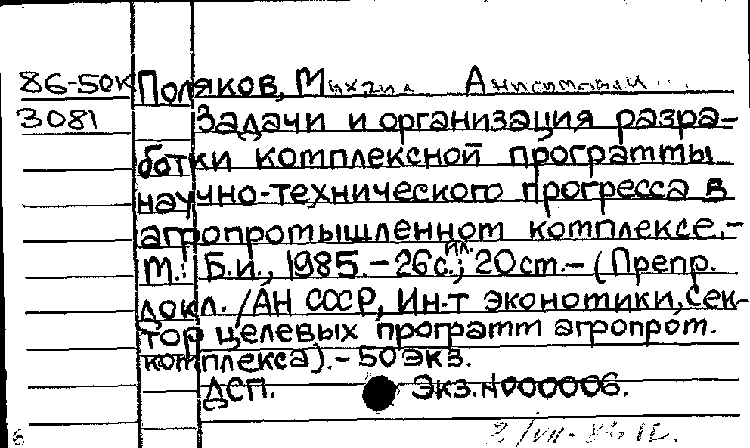 86-50к Поляков, Михаил Анисимович
3081 Задачи и организация разра-
ботки комплексной программы
научно-технического прогресса в
агропромышленном комплексе.-
М.: Б.и., 1985.-26с.: ил.; 20см.-(Препр.
докл./АН СССР, Ин-т экономики, Сек-
тор целевых программ агропром.
комплекса).-50экз.
ДСП. Экз.N000006.